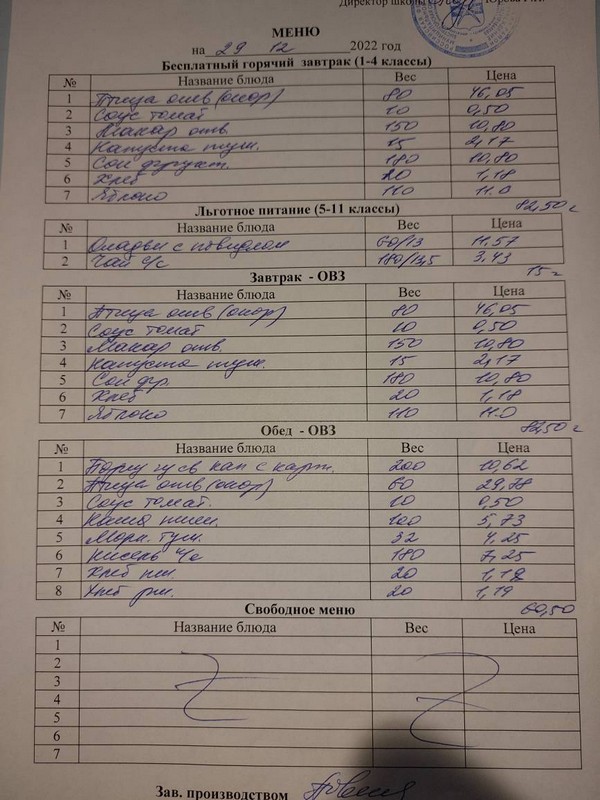 Директор школы
МЕНЮ
на 29 12 2022 год
Бесплатный горячий завтрак (1-4 классы)
№ Название блюда Вес Цена
1 Птица отв (окор) 80 46,05
2 Соус томат 10 0,50
3 Макар отв. 150 10,80
4 Капуста туш. 15 2,17
5 Сок фрукт. 180 10,80
6 Хлеб 20 1,18
7 Яблоко 110 11.0
82,50
Льготное питание (5-11 классы)
№ Название блюда Вес Цена
1 Оладьи с повидлом 60/13 11.57
2 Чай с/с 180/13,5 3.43
15
Завтрак - ОВЗ
№ Название блюда Вес Цена
1 Птица отв (окор) 80 46,05
2 Соус томат 10 0,50
3 Макар отв. 150 10,80
4 Капуста туш. 15 2,17
5 Сок фр. 180 10,80
6 Хлеб 20 1,18
7 Яблоко 110 11.0
82,50
Обед - ОВЗ
№ Название блюда Вес Цена
1 св кап с карт. 200 10,62
2 Птица отв (окор) 60 29,78
3 Соус томат. 10 0,50
4 Каша пшен. 100 5,73
5 Морк. туш. 32 4,25
6 Кисель 180 7,25
7 Хлеб пш. 20 1,18
8 Хлеб рж. 20 1,19
60,50
Свободное меню
№ Название блюда Вес Цена
1
2
3
4
5
6
7
Зав. производством